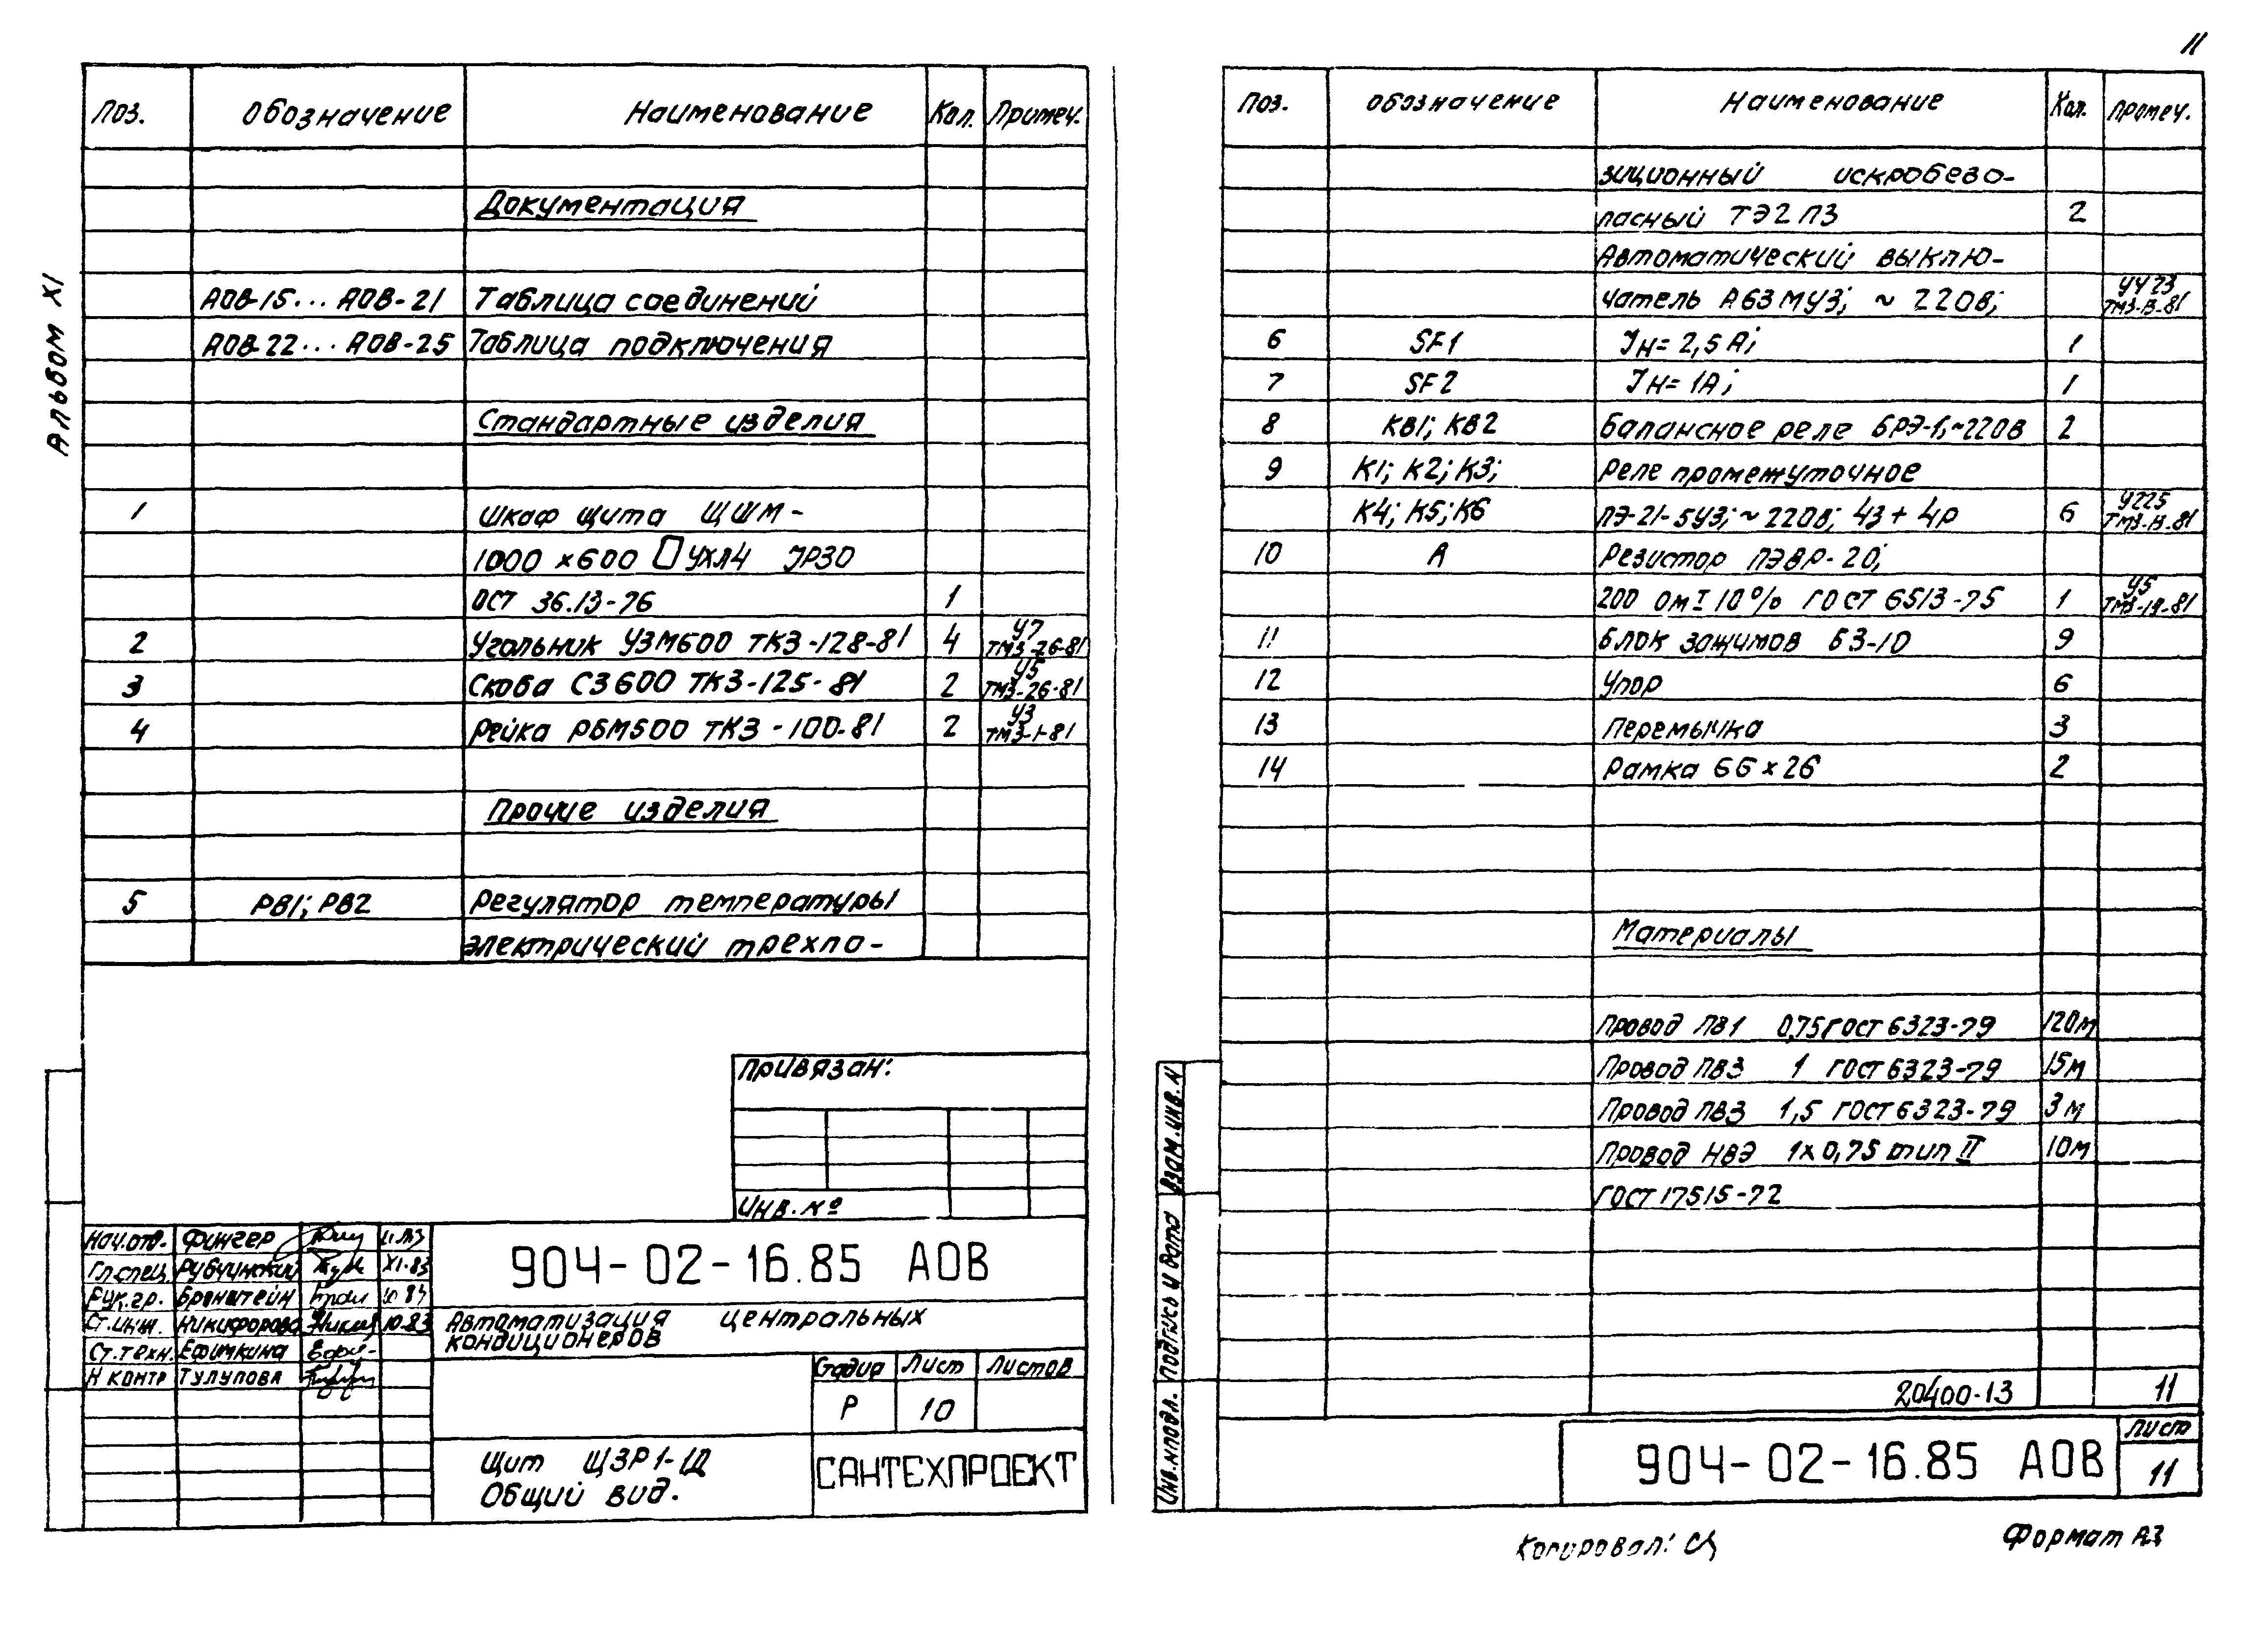 11
Альбом XI
Поз. Обозначение Наименование Кол. Примеч.
Документация
АОВ-15...АОВ-21 Таблица соединений
АОВ-22...АОВ-25 Таблица подключения
Стандартные изделия
1 Шкаф щита ЩШМ-
1000×600 УХЛ4 IP30
ОСТ 36.13-76 1
2 Угольник УЗМ600 ТКЗ-128-81 4 У7 ТМЗ-26-81
3 Скоба СЗ600 ТКЗ-125-81 2 У5 ТМЗ-26-81
4 Рейка РБМ500 ТКЗ-100-81 2 У3 ТМЗ-1-81
Прочие изделия
5 РВ1; РВ2 Регулятор температуры
электрический трехпо-
Привязан:
Инв. №
Нач.отд. Фингер 11.83
Гл.спец. Рубчинский XI.83
Рук.гр. Бронштейн 10.83
Ст.инж. Никифорова 10.83
Ст.техн. Ефимкина
Н контр Тулупова
904-02-16.85 АОВ
Автоматизация центральных
кондиционеров
Стадия Лист Листов
Р 10
Щит ЩЗР1-1Д
Общий вид.
САНТЕХПРОЕКТ
Поз. Обозначение Наименование Кол. Примеч.
зиционный искробезо-
пасный ТЭ2П3 2
Автоматический выклю-
чатель А63МУ3; ~220в; УЧ23 ТМЗ-13-81
6 SF1 Iн=2,5А; 1
7 SF2 Iн=1А; 1
8 КВ1; КВ2 Балансное реле БРЭ-1;~220В 2
9 К1; К2; К3; Реле промежуточное
К4; К5; К6 ПЭ-21-5У3;~220в; 4з+4р 6 У225 ТМЗ-13-81
10 А Резистор ПЭВР-20;
200 Ом±10% ГОСТ 6513-75 1 У5 ТМЗ-19-81
11 Блок зажимов БЗ-10 9
12 Упор 6
13 Перемычка 3
14 Рамка 66×26 2
Материалы
Провод ПВ1 0,75 ГОСТ 6323-79 120м
Провод ПВ3 1 ГОСТ 6323-79 15м
Провод ПВ3 1,5 ГОСТ 6323-79 3м
Провод НВЭ 1×0,75 тип II 10м
ГОСТ 17515-72
20400-13 11
Взам.инв.N
Подпись и дата
Инв.Nподл.
904-02-16.85 АОВ
Лист
11
Копировал:
Формат А3